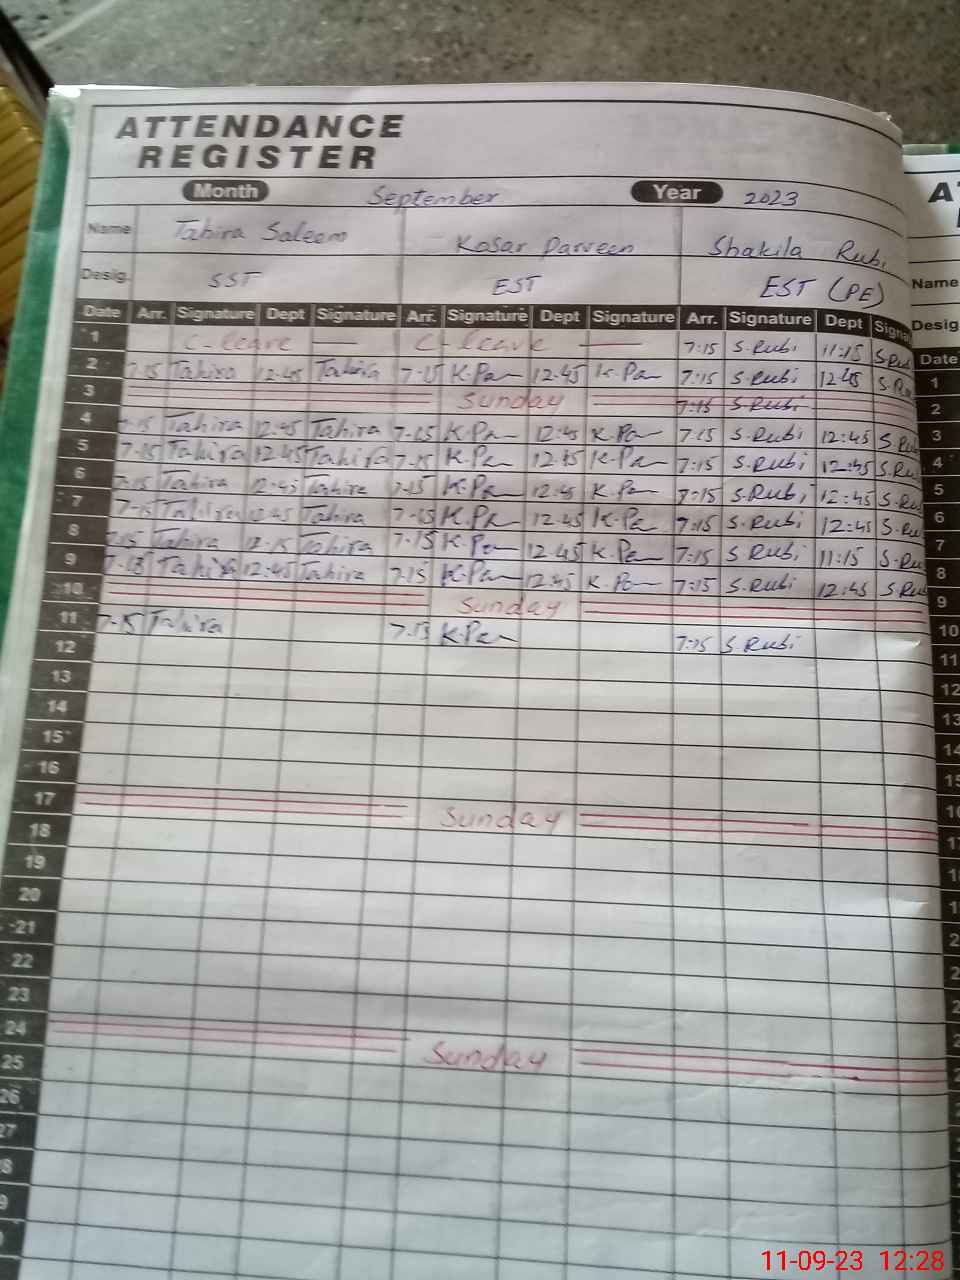 ATTENDANCE
REGISTER
Month September Year 2023
Name Tahira Saleem Kosar Parveen Shakila Rubi
Desig. SST EST EST (PE)
Date Arr. Signature Dept Signature Arr. Signature Dept Signature Arr. Signature Dept
1 C-leave C-leave 7:15 S.Rubi 11:15
2 7-15 Tahira 12.45 Tahira 7-15 K.Pa 12.45 K.Pa 7:15 S.Rubi 12:45
3 Sunday 7:15 S.Rubi
4 7-15 Tahira 12.45 Tahira 7-15 K.Pa 12:45 K.Pa 7:15 S.Rubi 12:45
5 7-15 Tahira 12.45 Tahira 7-15 K.Pa 12.45 K.Pa 7:15 S.Rubi 12:45
6 7-15 Tahira 12.45 Tahira 7-15 K.Pa 12.45 K.Pa 7:15 S.Rubi 12:45
7 7-15 Tahira 12.45 Tahira 7-15 K.Pa 12.45 K.Pa 7:15 S.Rubi 12:45
8 7-15 Tahira 12-15 Tahira 7.15 K.Pa 12.45 K.Pa 7:15 S.Rubi 11:15
9 7-15 Tahira 12:45 Tahira 7.15 K.Pa 12.45 K.Pa 7:15 S.Rubi 12:45
10 Sunday
11 7-15 Tahira 7.15 K.Pa 7:15 S.Rubi
12
13
14
15
16
17 Sunday
18
19
20
21
22
23
24 Sunday
25
26
Name
Desig
Date
1
2
3
4
5
6
7
8
9
10
11
12
13
14
11-09-23 12:28